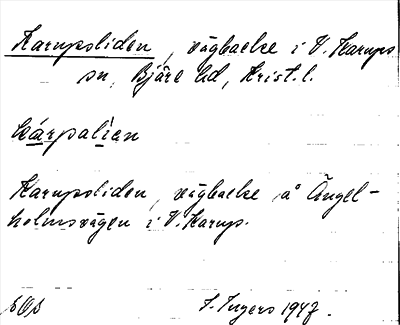 Karupsliden, vägbacke i V. Karups
sn, Bjäre hd, Krist. l.
kárpalìen
Karupsliden, vägbacke å Ängel-
holmsvägen i V. Karup.
Ingers 1947.